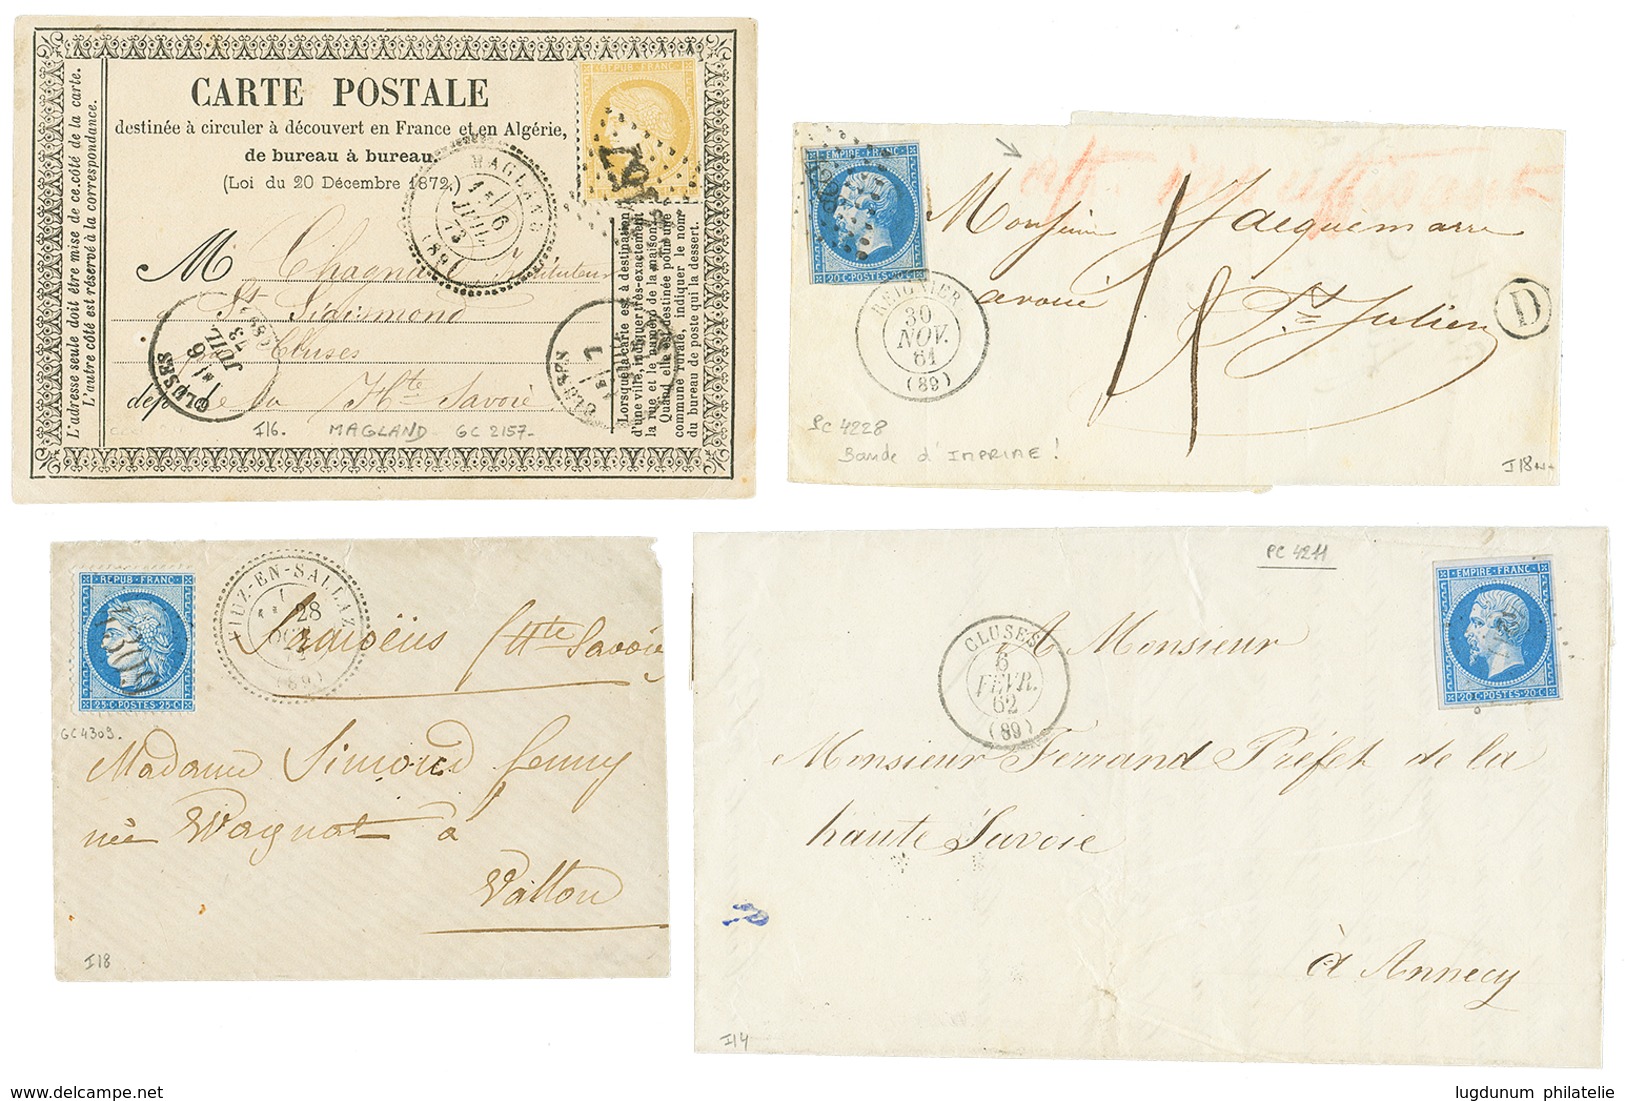 CARTE POSTALE
destinée à circuler à découvert en France et en Algérie,
de bureau à bureau.
(Loi du 20 Décembre 1872.)
L'adresse seule doit être mise de ce côté de la carte.
L'autre côté est réservé à la correspondance.
REPUB. FRANC.
MAGLAND
6
JUIL.
73
(89)
M
Cluses
Hte Savoie
CLUSES
6
JUIL
73
CLUSES
Lorsque la carte est à destination
d'une ville, indiquer très-exactement
la rue et le numéro de la maison.
Quand elle est destinée pour une
commune rurale, indiquer le nom
du bureau de poste qui la dessert.
I16. MAGLAND GC 2157-
EMPIRE FRANC.
20 C. POSTES 20 C.
REIGNIER
30
NOV.
61
(89)
Monsieur Jacquemarre
avoué
St Julien
D
PC 4228
Bande d'IMPRIME !
I18
REPUB. FRANC.
25 C. POSTES 25 C.
4309
VIUZ-EN-SALLAZ
28
OCT.
(89)
GC4309.
(Hte Savoie
Madame Simond Jenny
née Wagnat à
I18
PC 4211
EMPIRE FRANC.
20 C. POSTES 20 C.
CLUSES
6
FÉVR.
62
(89)
A Monsieur
Monsieur Ferrand Préfet de la
haute Savoie
à Annecy
I14
delcampe.net
lugdunum philatelie